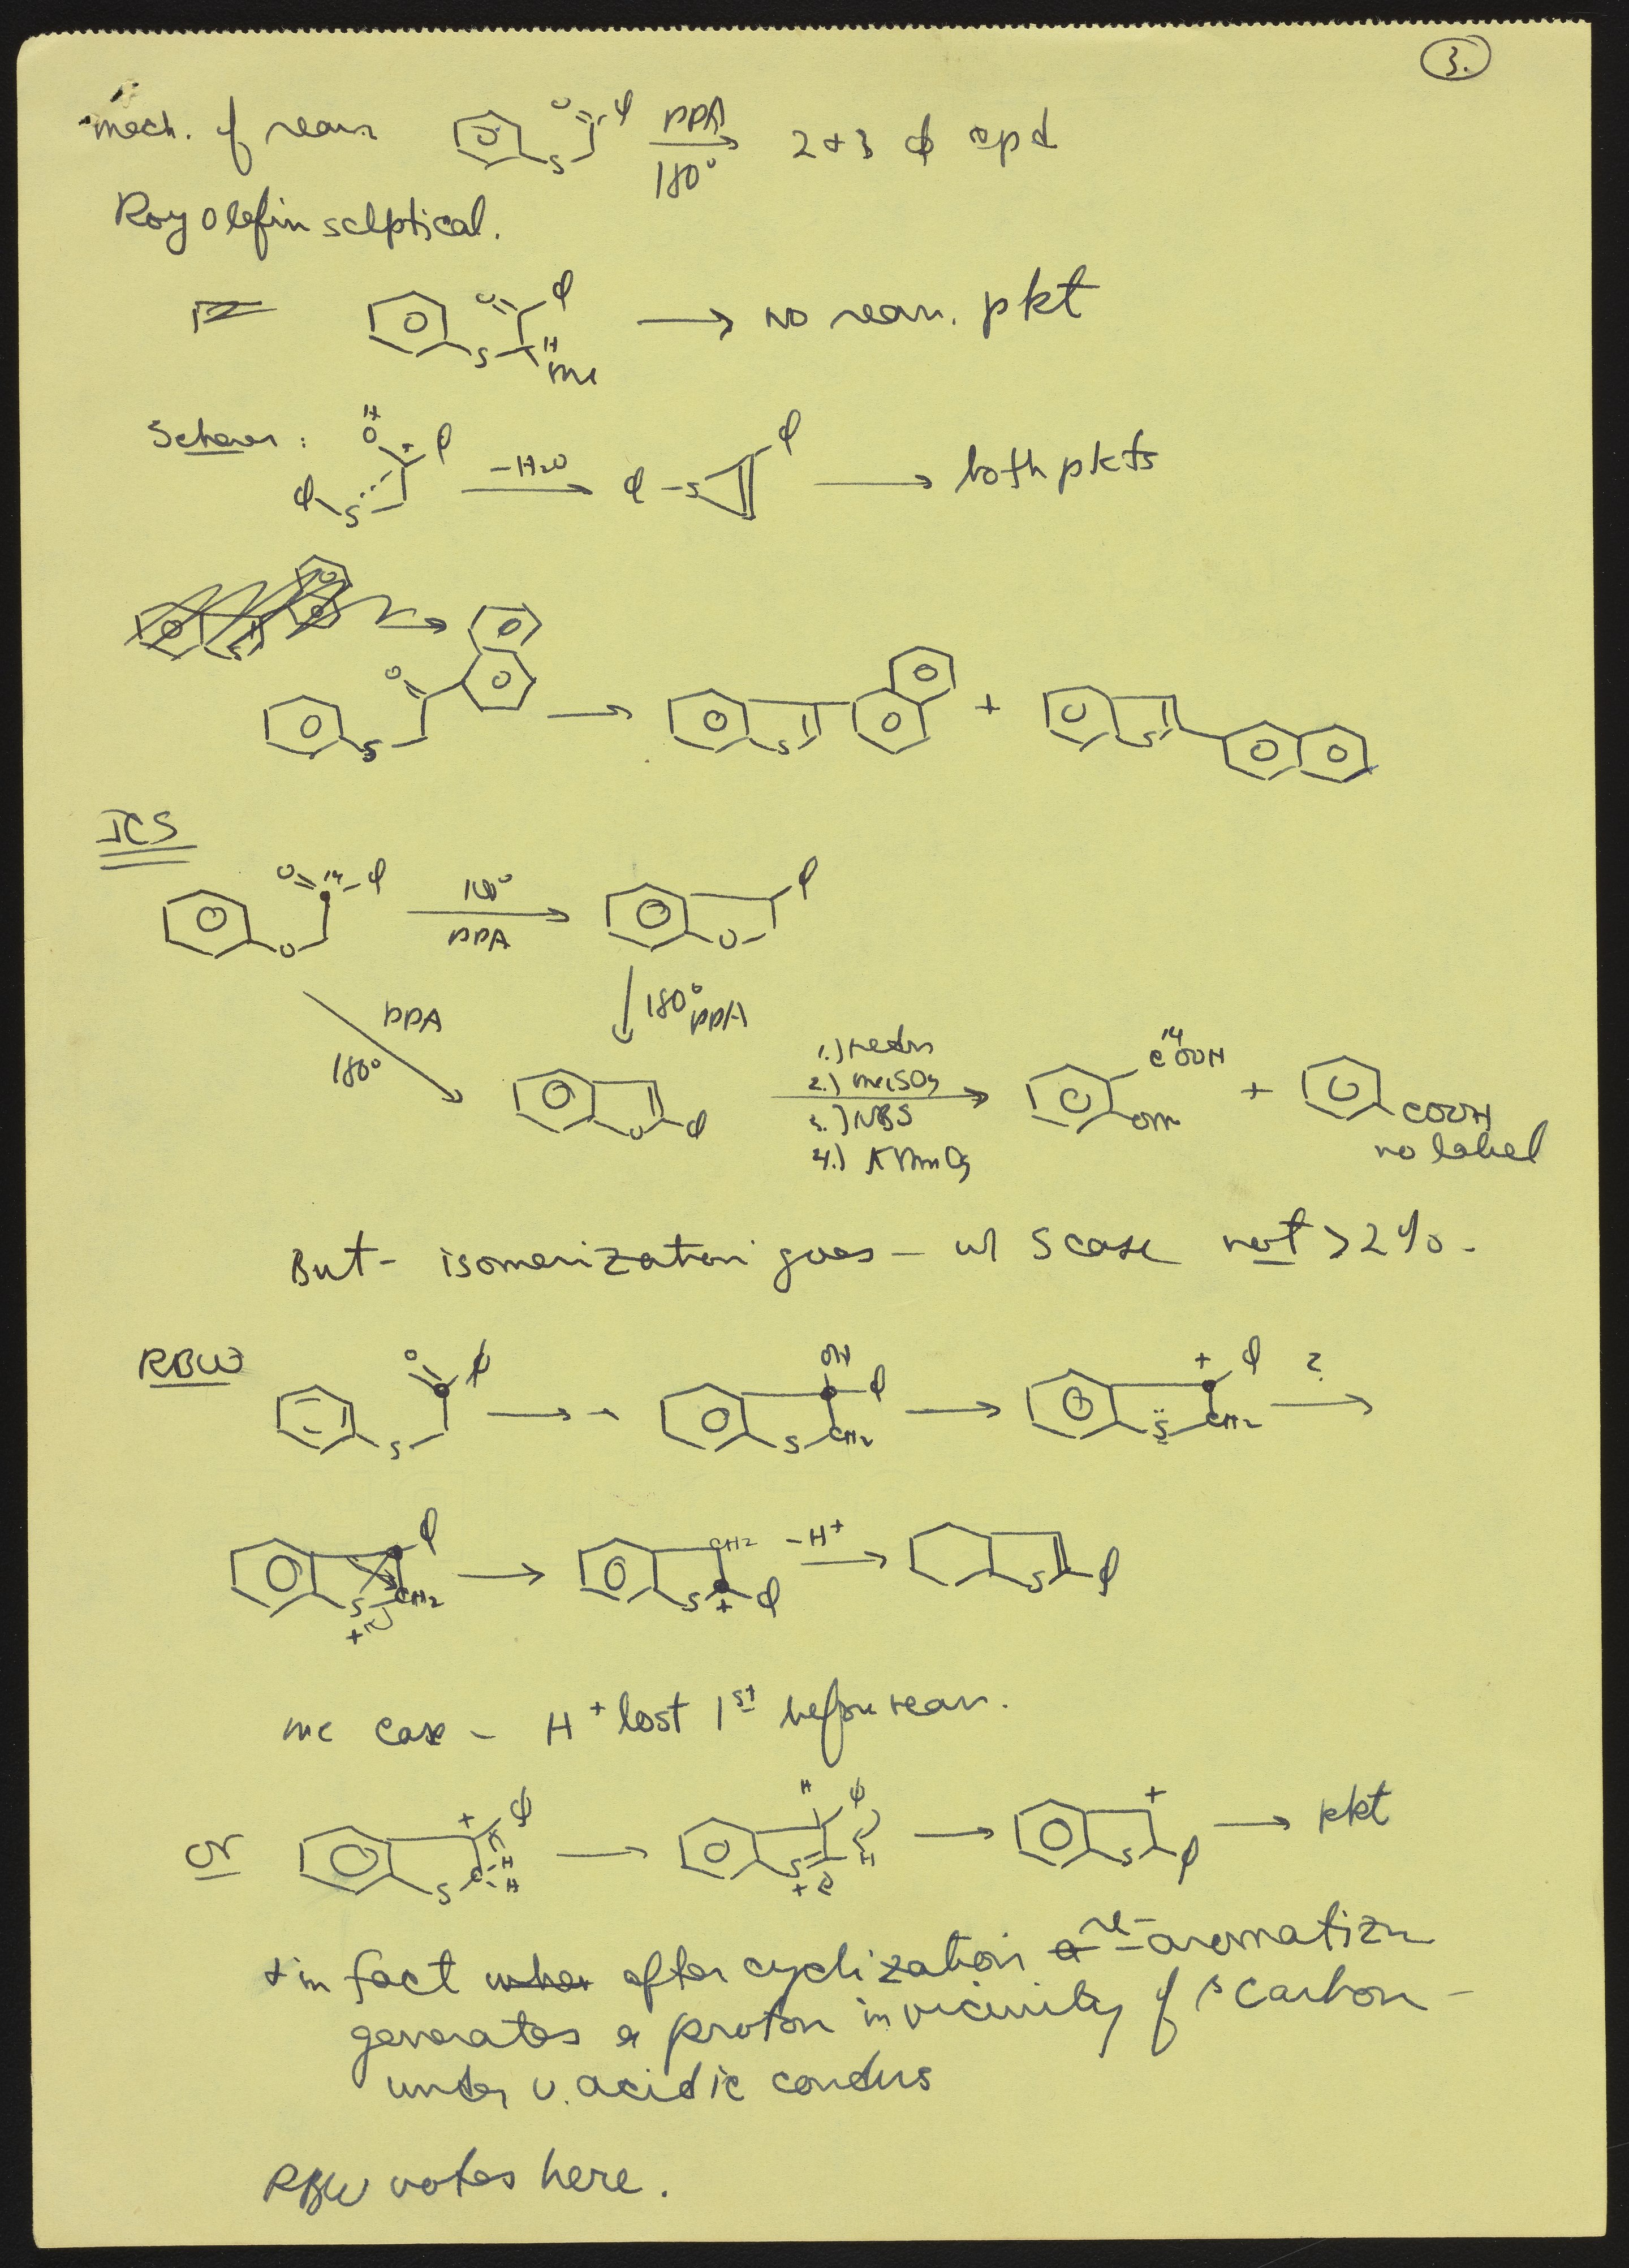 3.
mech. of rearr. O φ S PPA 180° 2 + 3 φ cpd
Roy Olefin sceptical.
O φ S H Me → no rearr. pkt
H O + φ φ S -H2O φ-S φ → both pkts
O S → S + S
JCS
O 14 φ O PPA φ O
PPA 180° 180° PPA
O φ 1.) redn 2.) Me2SO4 3.) NBS 4.) KMnO4 14 COOH OMe + COOH no label
But - isomerization goes - w/ S case not > 2%.
RBW O φ S → OH φ S CH2 → + φ S CH2 ? →
φ S + CH2 → CH2 S + φ -H+ → S φ
Me case - H+ lost 1st before rearr.
or + φ S C H H → H φ S + H → + S φ → pkt
+ in fact after cyclization re-aromatizn
generates a proton in vicinity of β carbon -
under v. acidic condns
RBW votes here.